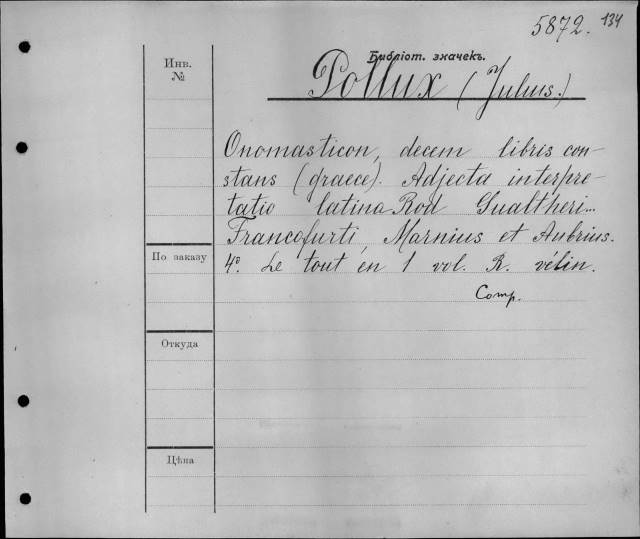 5872. 134
Библіот. значекъ.
Инв.
№
Pollux (Julius.)
Onomasticon, decem libris con-
stans (graece). Adjecta interpre-
tatio latina Rod Gualtheri...
Francofurti, Marnius et Aubrius.
По заказу
4º. Le tout en 1 vol. R. vélin.
Comp.
Откуда
Цѣна